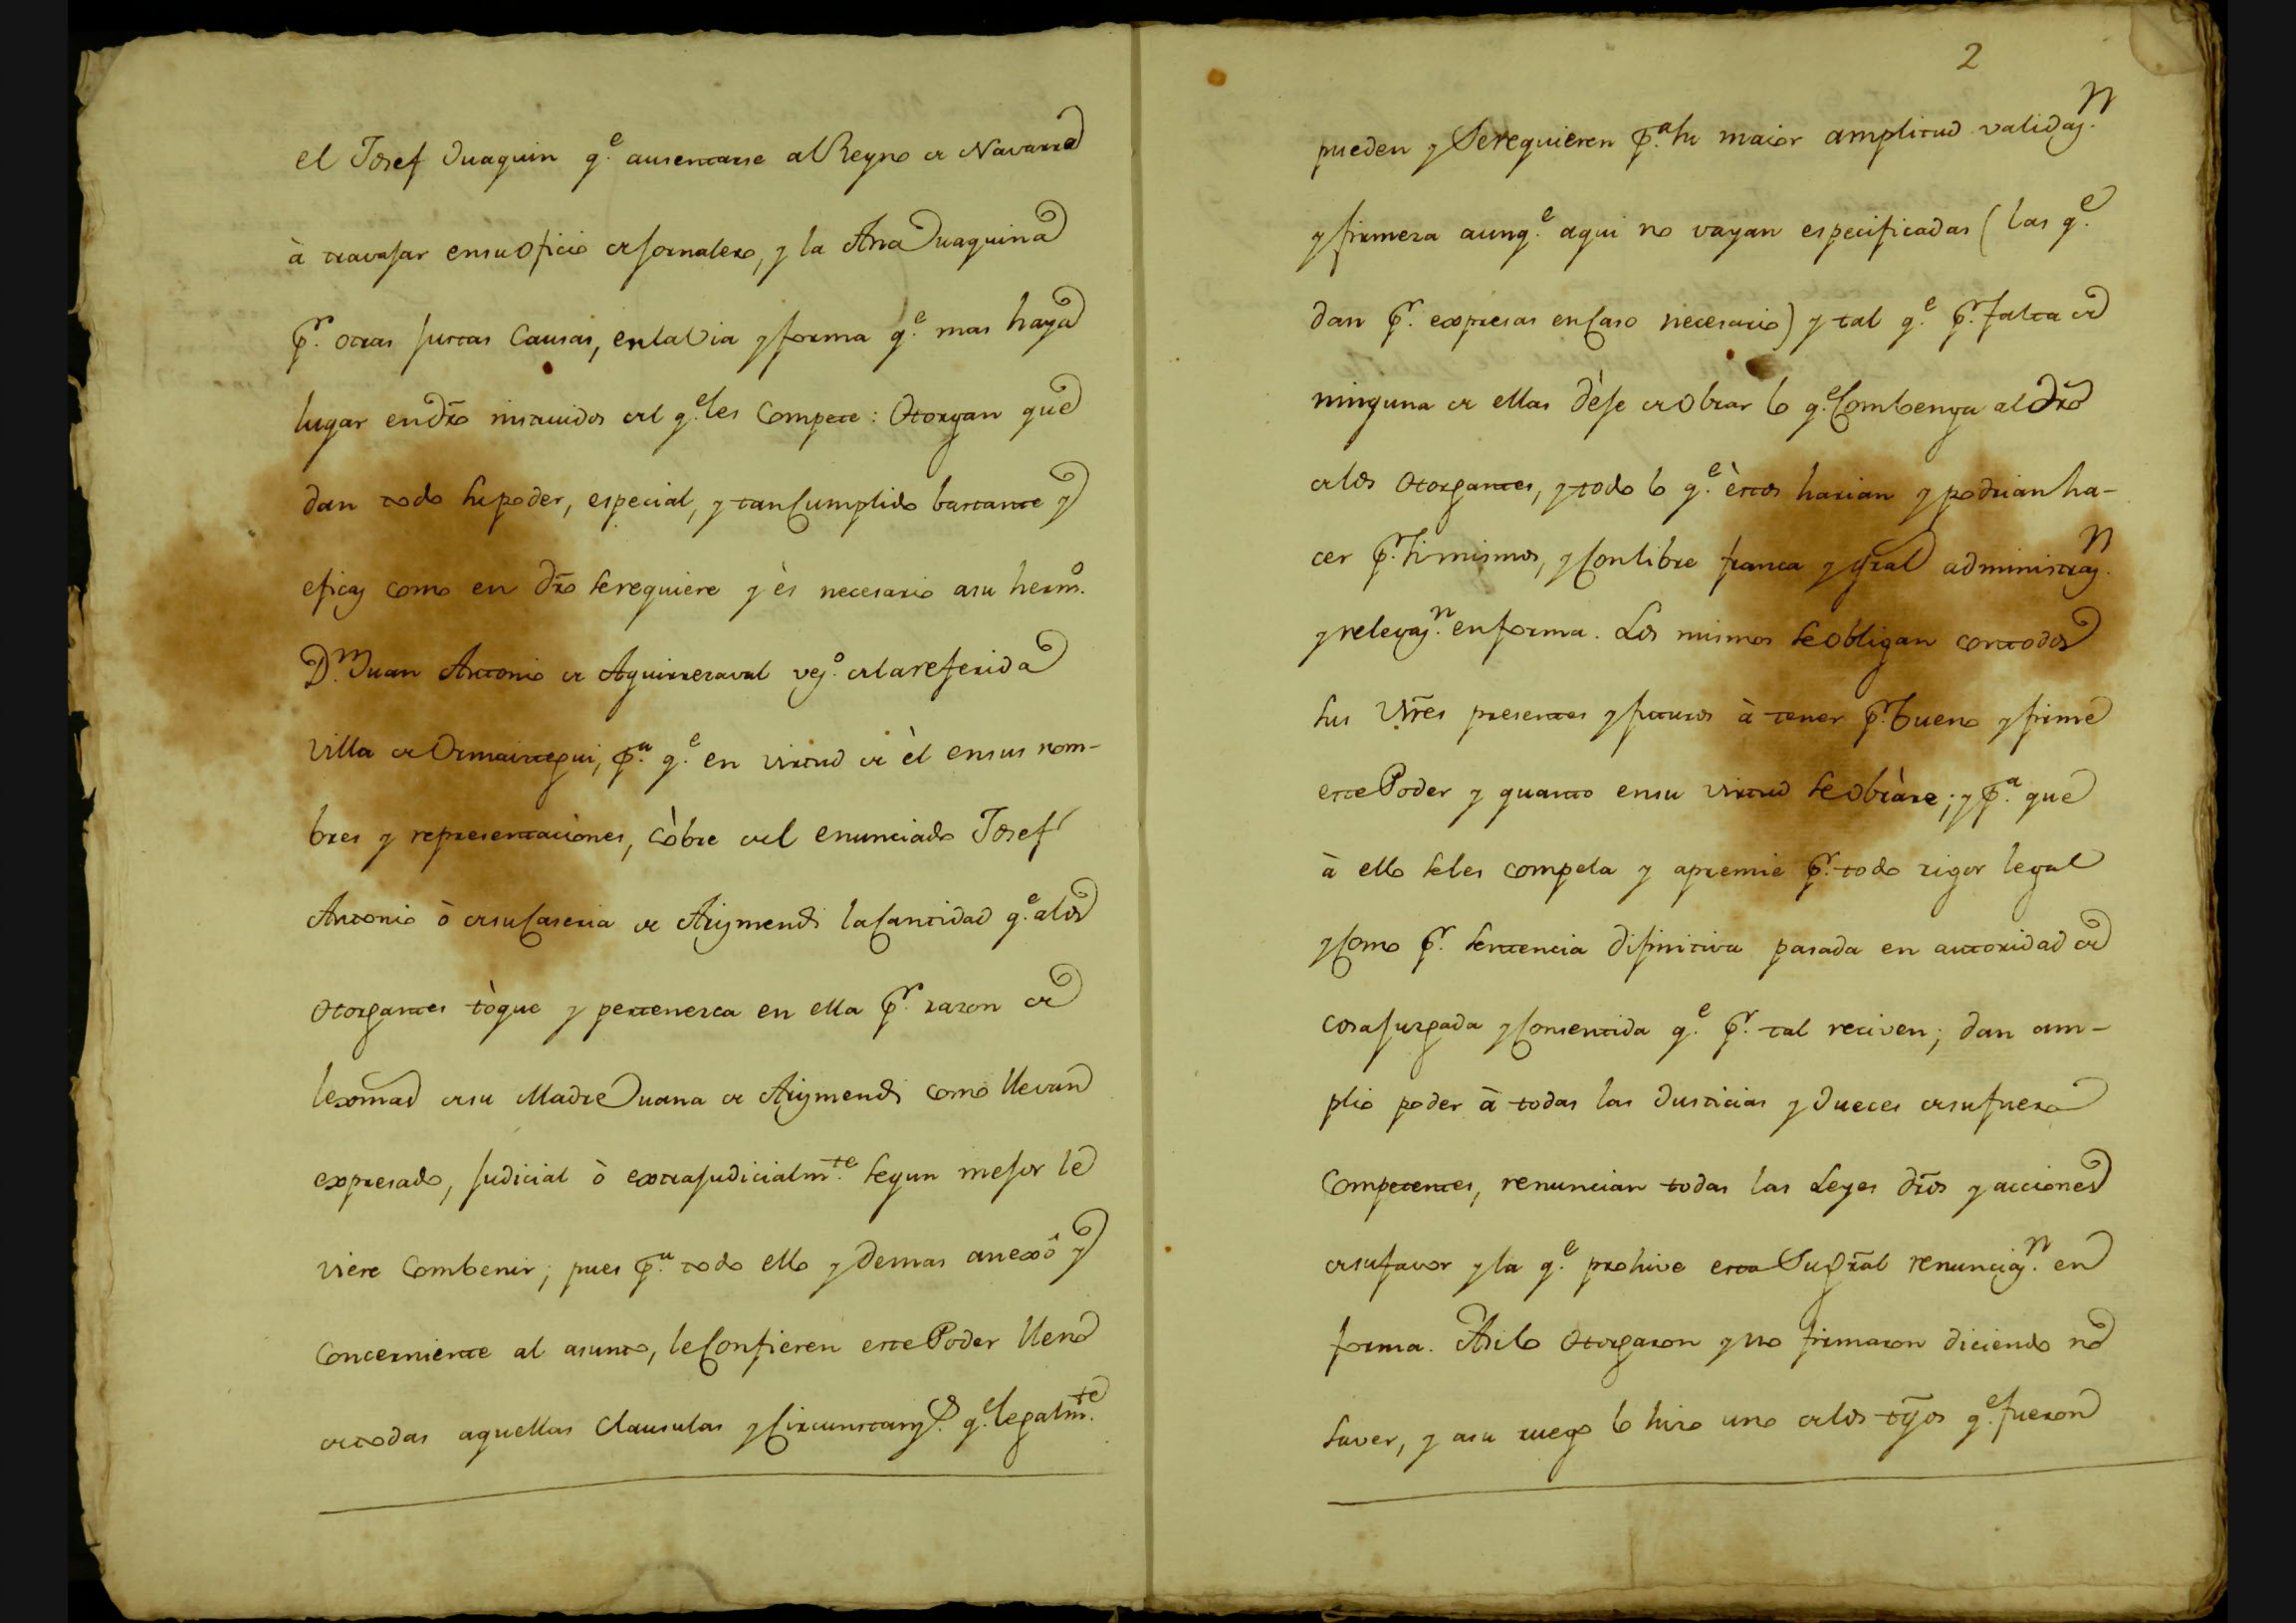 el Josef Juaquin q.e ausentarse al Reyno de Navarra
à travajar en su oficio de jornalero, y la Ana Juaquina
p.r otras justas Causas, en la Via y forma q.e mas haya
lugar en dro instruidos del q.e les Compete: Otorgan que
dan todo su poder, especial, y tan Cumplido bastante y
eficaz como en dro se requiere y ès necesario a su herm.o
D.n Juan Antonio de Aguirrezaval vez.o de la referida
Villa de Ormaiztegui, p.a q.e en virtud de èl en sus nom-
bres y representaciones, còbre del enunciado Josef
Antonio ò de su Caseria de Arizmendi la Cantidad q.e a los
Otorgantes tòque y pertenezca en ella p.r razon de
lexitima de su Madre Juana de Arizmendi como llevan
expresado, judicial ò extrajudicialm.te segun mejor le
viere Combenir; pues p.a todo ello y demas anexô y
Concerniente al asunto, le Confieren este Poder lleno
de todas aquellas Clausulas y Circunstanz.s q.e legalm.te
2
pueden y Se requieren p.a su maior amplitud validaz.n
y firmeza aunq.e aqui no vayan especificadas (las q.e
dan p.r expresas en Caso necesario) y tal q.e p.r falta de
ninguna de ellas dèje de Obrar lo q.e Combenga al dro
de los Otorgantes, y todo lo q.e èstos harian y podrian ha-
cer p.r si mismos, y Con libre franca y gral administraz.n
y relevaz.n en forma. Los mismos se obligan con todos
sus Vnes presentes y futuros à tener p.r bueno y firme
este Poder y quanto en su virtud se Obràre; y p.a que
à ello se les compela y apremie p.r todo rigor legal
y Como p.r sentencia difinitiva pasada en autoridad de
cosa juzgada y Consentida q.e p.r tal reciven; dan am-
plio poder à todas las Justicias y Jueces de su fuero
Competentes, renuncian todas las Leyes dros y acciones
de su favor y la q.e prohive esta Su gral renunciaz.n en
forma. Asi lo Otorgaron y no firmaron diciendo no
saver, y a su ruego lo hizo uno de los tgos q.e fueron